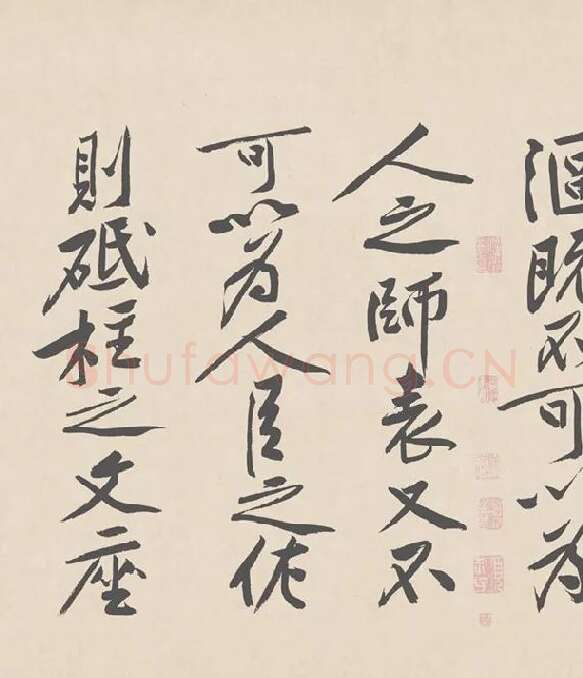 漚既不可以為
人之師表又不
可以為人臣之佐
則砥柱之文座
Shufawang.CN